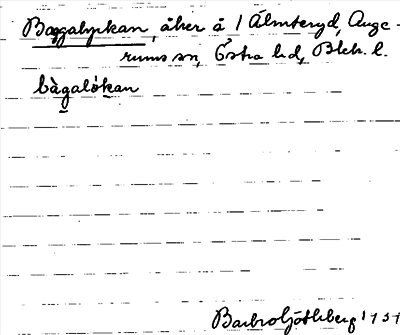 Baggalyckan, åker å 1 Älmteryd, Auge-
rums sn, Östra hd, Blek. l.
bàgalökan
Barbro Götheberg 1931